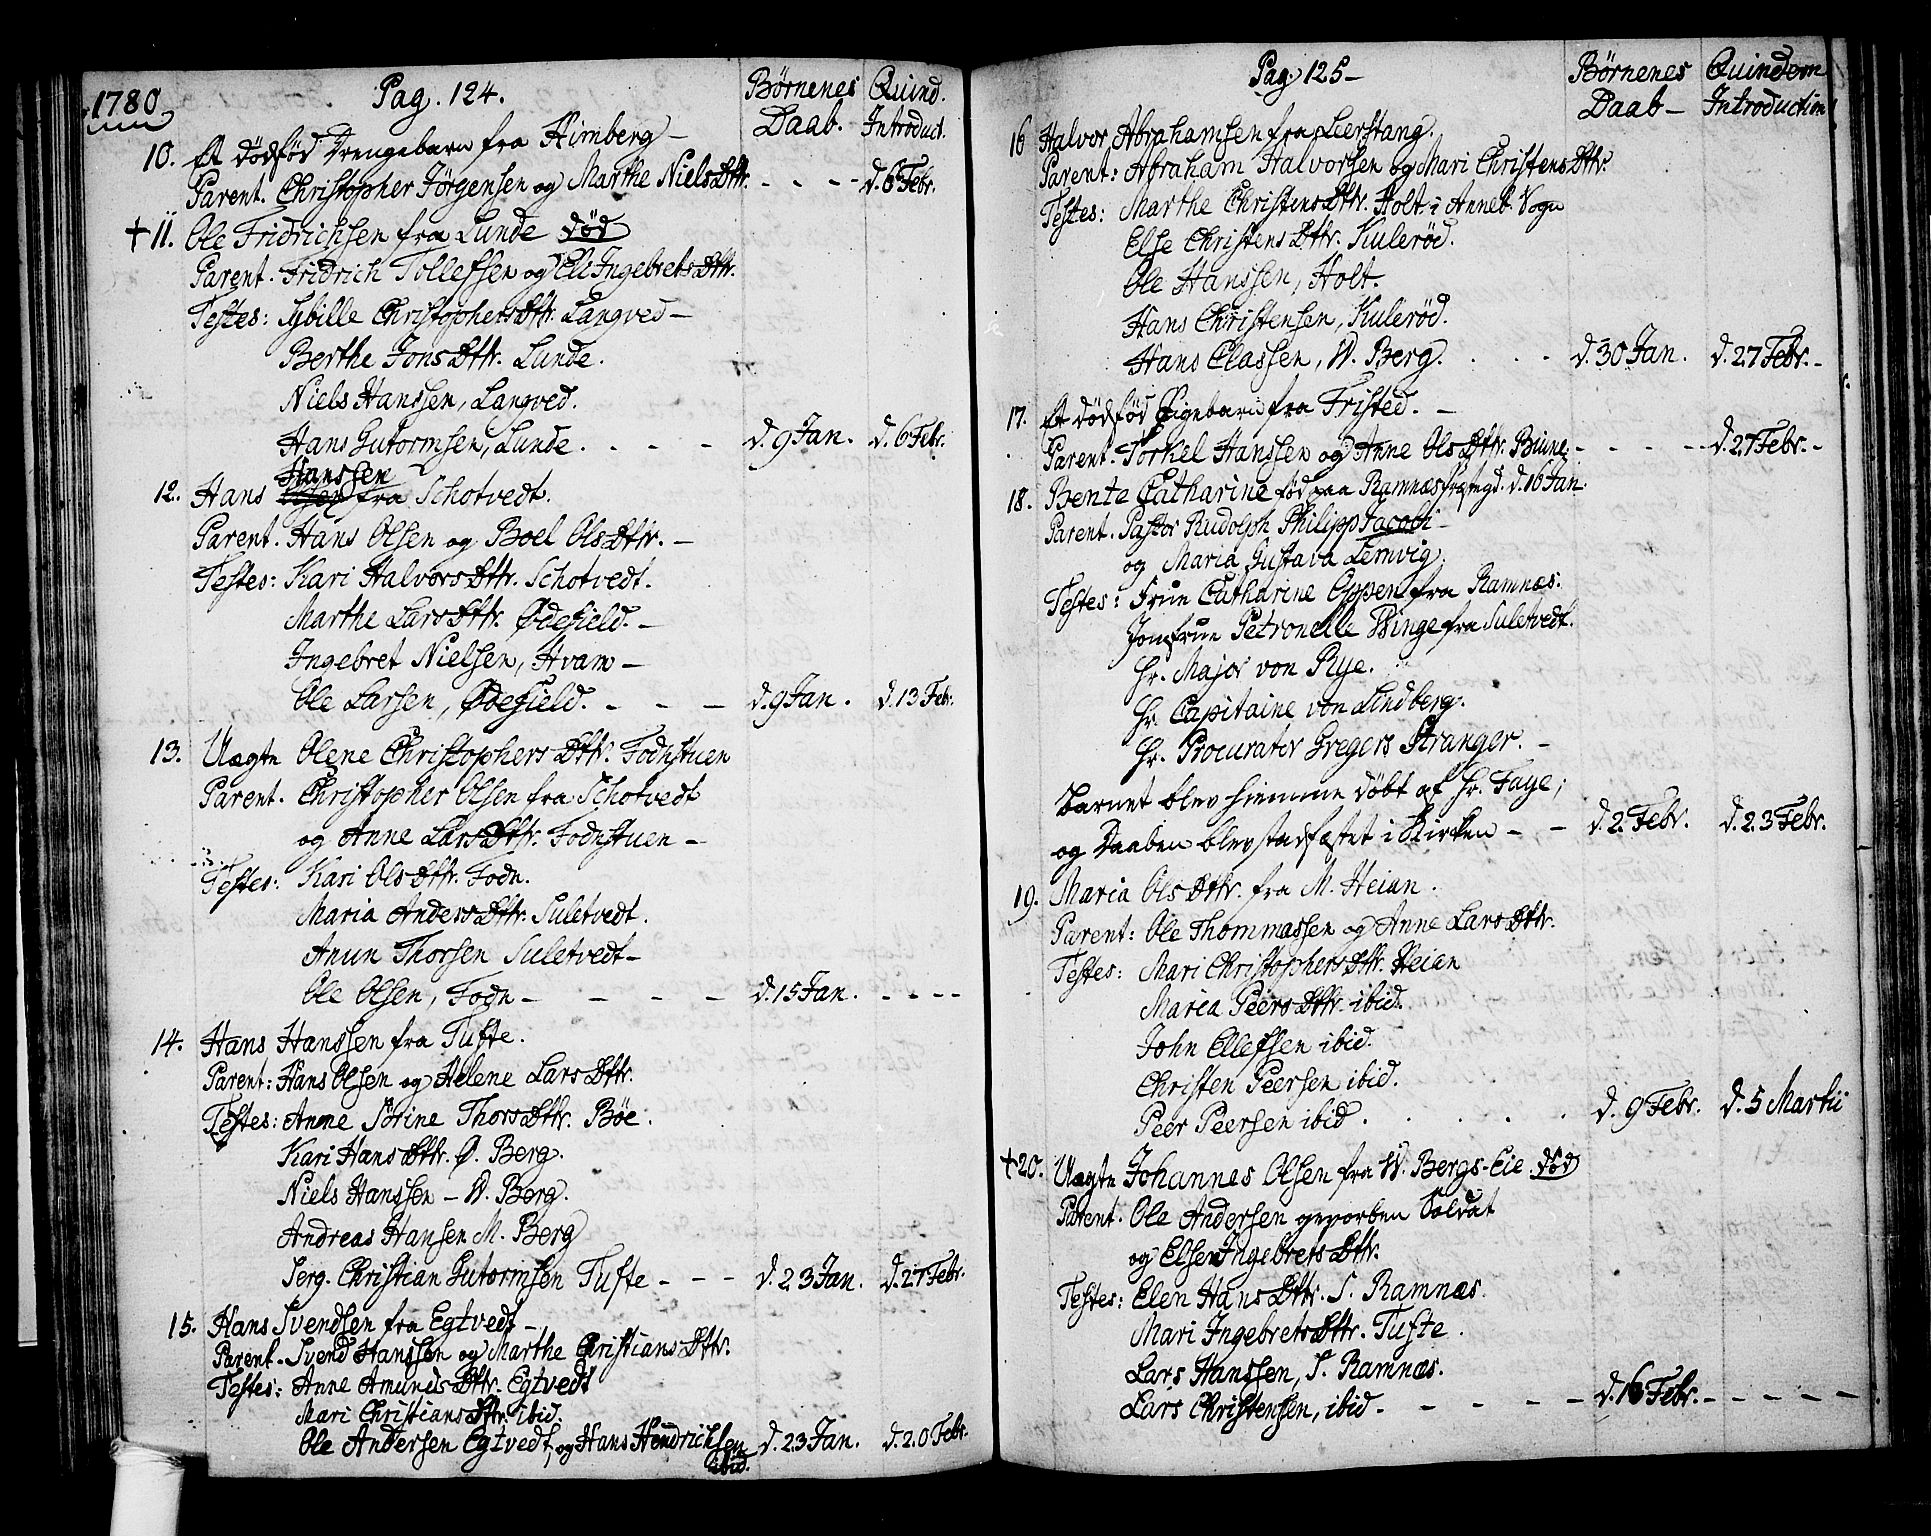 1780
Pag. 124.
Børnenes Daab.
Quind. Introduct.
10. Et dödfød Drengebarn fra Himberg -
Parent. Christopher Jörgensen og Marthe NielsDttr. - - - - d. 6 Febr.
+ 11. Ole Fridrichsen fra Lunde død
Parent. Fridrich Tollefsen og Eli IngebretsDttr.
Testes: Sybille ChristophersDttr. Langved -
Berthe JonsDttr. Lunde.
Niels Hanssen, Langved.
Hans Gutormsen, Lunde. - - - d. 9 Jan. d. 6 Febr.
Hanssen
12. Hans fra Schotvedt.
Parent. Hans Olsen og Boel OlsDttr. -
Testes: Kari HalvorsDttr. Schotvedt.
Marthe LarsDttr. Ødefield. -
Ingebret Nielsen, Hvam -
Ole Larsen, Ødefield. - - - d. 9 Jan. d. 13 Febr.
13. Uægte Olene ChristophersDttr. Fodnstuen
Parent. Christopher Olsen fra Schotvedt
og Anne LarsDttr. Fodnstuen -
Testes: Kari OlsDttr. Fodn.
Maria AndersDttr. Suletvedt.
Anun Thorsen Suletvedt -
Ole Olsen, Fodn - - - - d. 15 Jan. - - - -
14. Hans Hanssen fra Tufte.
Parent: Hans Olsen og Helene LarsDttr.
Testes: Anne Sörine ThorsDttr. Böe.
Kari HansDttr. Ø. Berg.
Niels Hanssen - W. Berg.
Andreas Hansen M. Berg
Serg. Christian Gutormsen Tufte - - - d. 23 Jan. d. 27 Febr.
15. Hans Svendsen fra Egtvedt -
Parent. Svend Hanssen og Marthe ChristiansDttr.
Testes: Anne AmundsDttr. Egtvedt
Mari ChristiansDttr. ibid.
Ole Andersen Egtvedt, og Hans Hendrichsen d. 23 Jan. d. 20 Febr.
ibid.
Pag. 125 -
Børnenes Daab -
Quindern Introduction
16 Halvor Abrahamsen fra Leerstang.
Parent: Abraham Halvorsen og Mari ChristensDttr.
Testes: Marthe ChristensDttr. Holt i Anneb. Sogn
Else ChristensDttr. Kulerød.
Ole Hanssen, Holt.
Hans Christensen, Kulerød.
Hans Classen, W. Berg. . . - d. 30 Jan. d. 27 Febr. -
17. Et dödfød Pigebarn fra Fristed. -
Parent. Torkel Hanssen og Anne OlsDttr. - - - - d. 27 Febr. -
18. Bente Catharine fød paa Ramnæs d. 16 Jan.
Parent. Pastor Rudolph Philipp Jacobi -
og Maria Gustava Lemvig.
Testes: Frue Catharine Oppen fra Ramnæs.
Jomfrue Petronelle Winge fra Suletvedt.
Hr. Major von Rye.
Hr. Capitaine von Lindberg.
Hr. Procurator Gregers Stranger. -
Barnet blev hiemme døbt af Hr. Faye;
og Daaben blev stadfæstet i Kirken - - d. 2. Febr. d. 23 Febr.
19. Maria OlsDttr. fra M. Heian.
Parent: Ole Thommassen og Anne LarsDttr.
Testes: Mari ChristophersDttr. Heian
Maria PeersDttr. ibid.
John Ellefsen ibid.
Christen Peersen ibid.
Peer Peersen ibid. . . . . d. 9 Febr. d. 5 Martii
+ 20. Uægte Johannes Olsen fra W. Bergs-Eie død
Parent. Ole Andersen gevorben Soldat
og Else IngebretsDttr.
Testes: Elen HansDttr. S. Ramnæs.
Mari IngebretsDttr. Tufte.
Lars Hanssen, S. Ramnæs.
Lars Christensen, ibid. - - - - d. 16 Febr. - - - - -